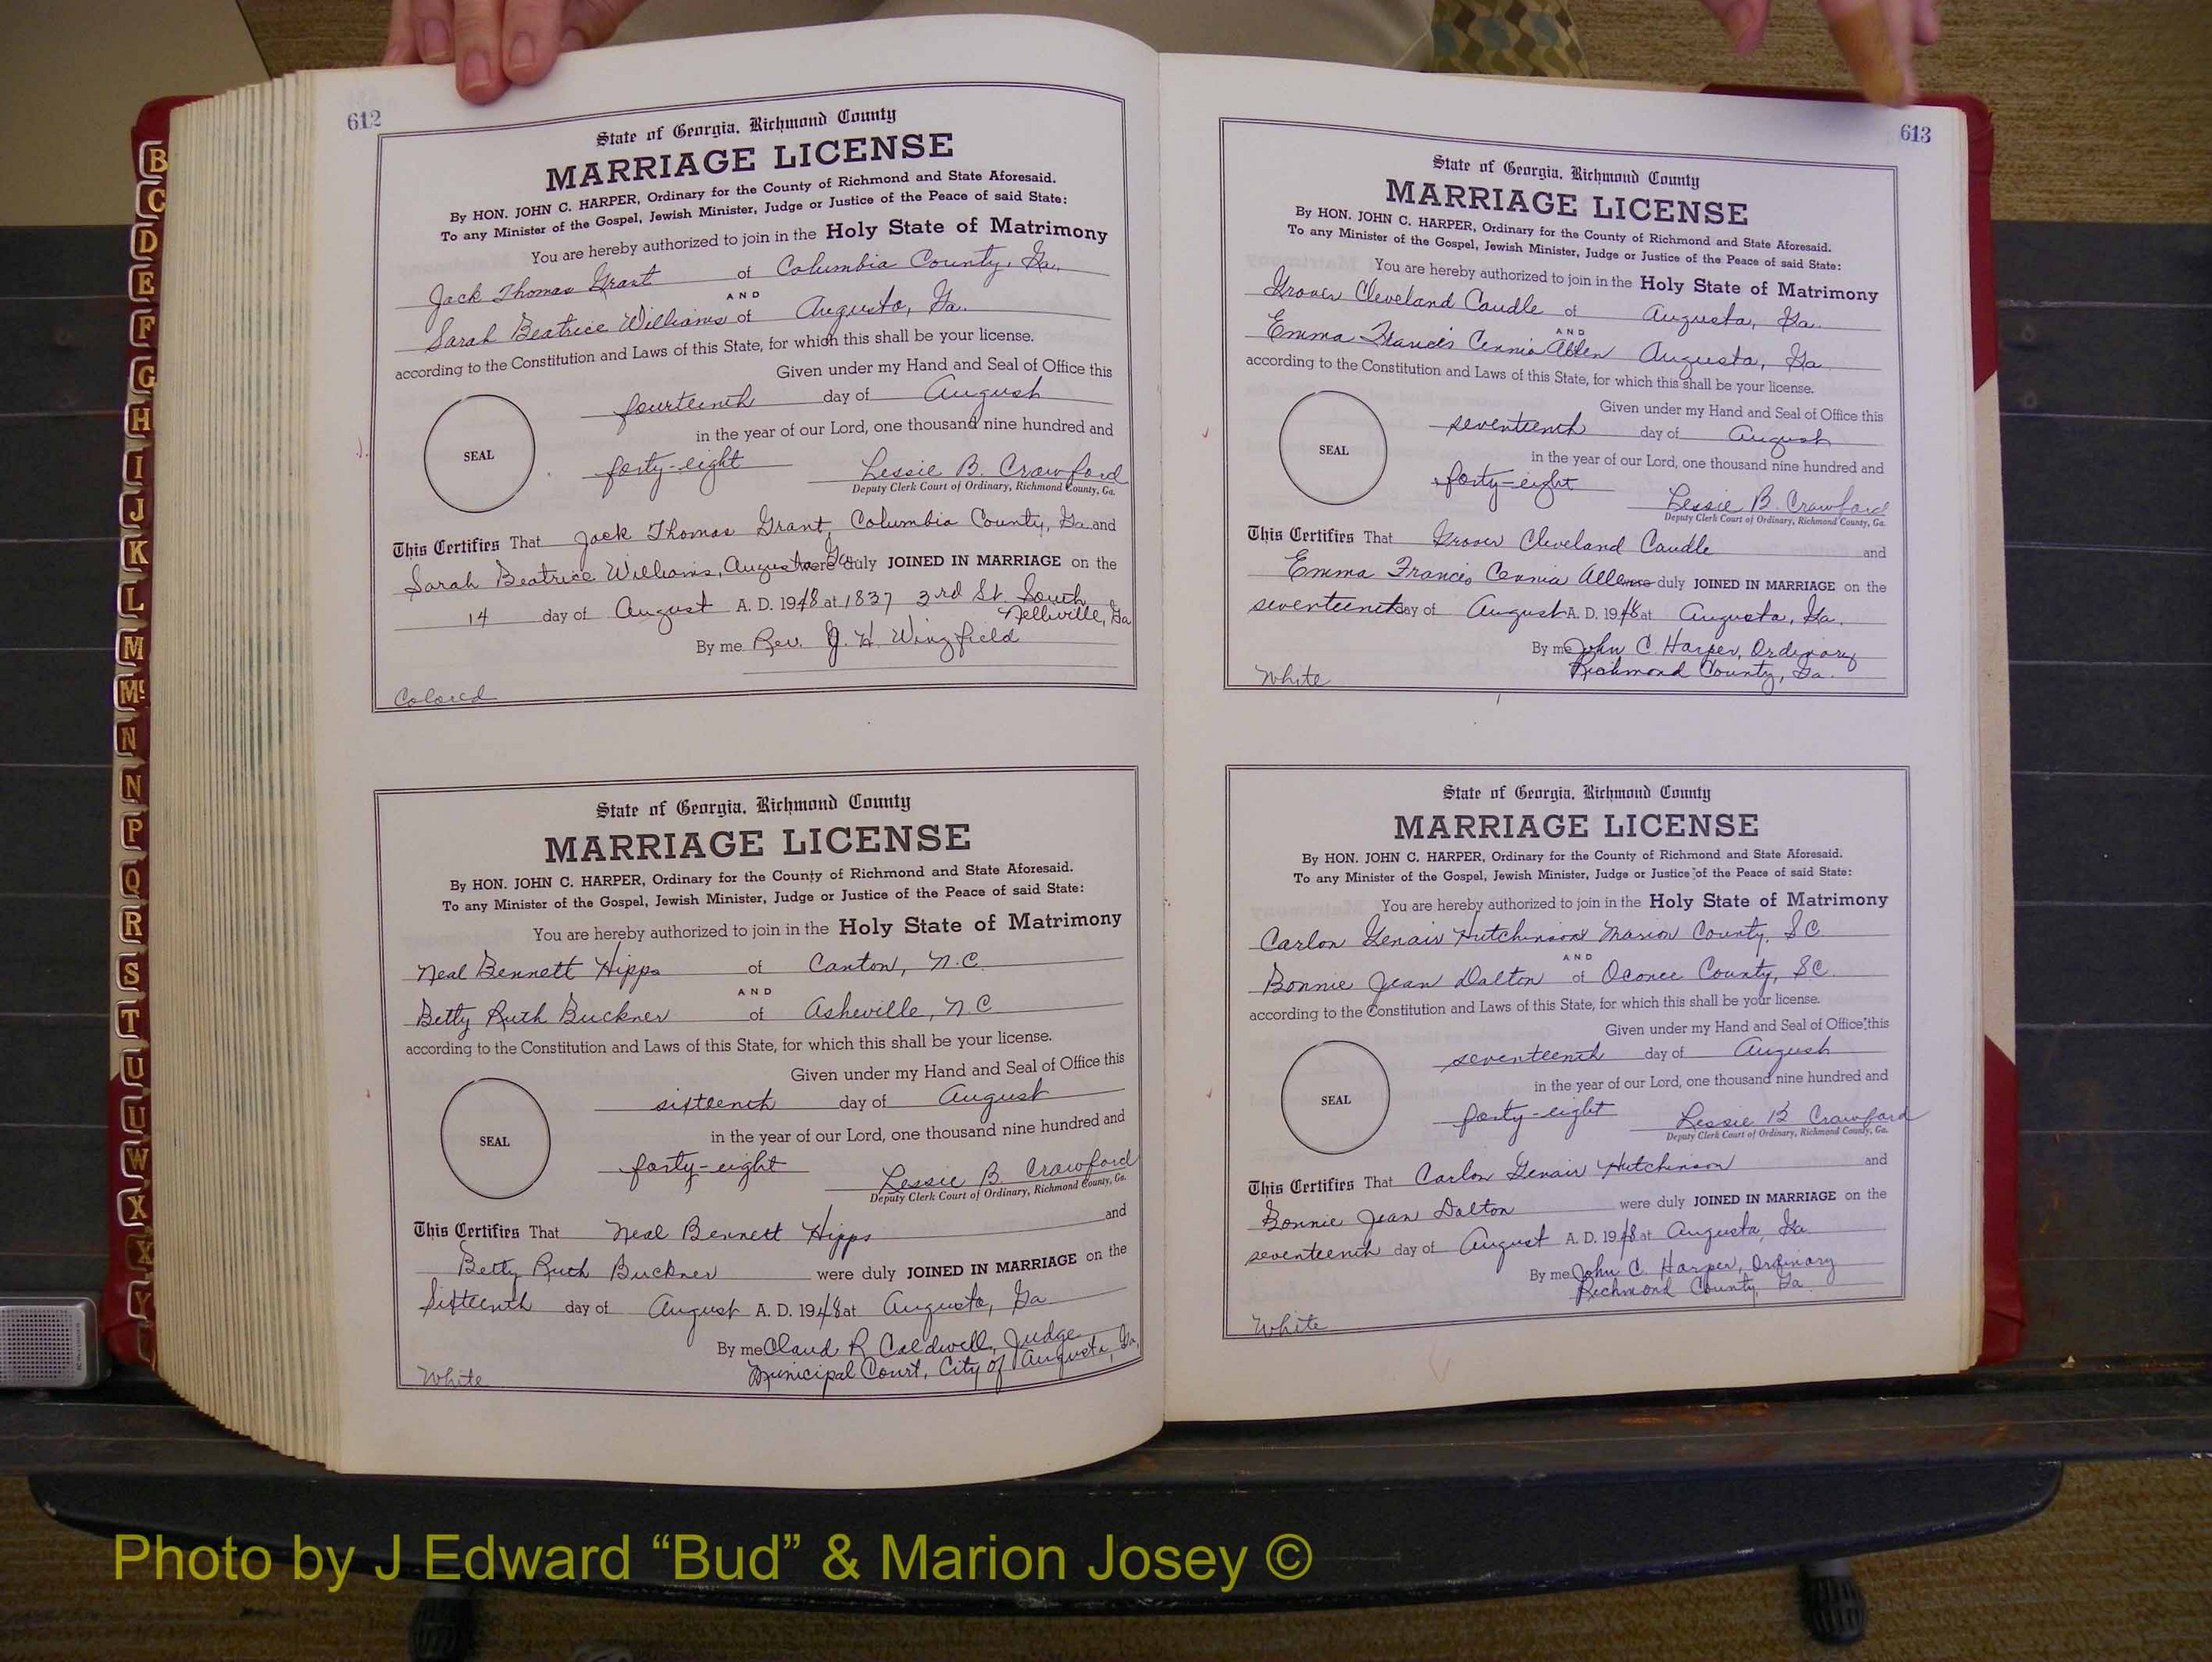 612
State of Georgia, Richmond County
MARRIAGE LICENSE
By HON. JOHN C. HARPER, Ordinary for the County of Richmond and State Aforesaid.
To any Minister of the Gospel, Jewish Minister, Judge or Justice of the Peace of said State:
You are hereby authorized to join in the Holy State of Matrimony
Jack Thomas Grant of Columbia County, Ga.
AND
Sarah Beatrice Williams of Augusta, Ga.
according to the Constitution and Laws of this State, for which this shall be your license.
Given under my Hand and Seal of Office this
fourteenth day of August
in the year of our Lord, one thousand nine hundred and
SEAL
forty-eight Lessie B. Crawford
Deputy Clerk Court of Ordinary, Richmond County, Ga.
This Certifies That Jack Thomas Grant, Columbia County, Ga and
Sarah Beatrice Williams, Augusta, Ga were duly JOINED IN MARRIAGE on the
14 day of August A. D. 1948 at 1837 3rd St. South
Nellieville, Ga
By me Rev. J. H. Wingfield
Colored
State of Georgia, Richmond County
MARRIAGE LICENSE
By HON. JOHN C. HARPER, Ordinary for the County of Richmond and State Aforesaid.
To any Minister of the Gospel, Jewish Minister, Judge or Justice of the Peace of said State:
You are hereby authorized to join in the Holy State of Matrimony
Neal Bennett Hipps of Canton, N.C.
AND
Betty Ruth Buckner of Asheville, N.C
according to the Constitution and Laws of this State, for which this shall be your license.
Given under my Hand and Seal of Office this
sixteenth day of August
in the year of our Lord, one thousand nine hundred and
SEAL
forty-eight Lessie B Crawford
Deputy Clerk Court of Ordinary, Richmond County, Ga.
This Certifies That Neal Bennett Hipps and
Betty Ruth Buckner were duly JOINED IN MARRIAGE on the
Sixteenth day of August A. D. 1948 at Augusta, Ga
By me Claud R Caldwell, Judge
Municipal Court, City of Augusta, Ga.
White
613
State of Georgia, Richmond County
MARRIAGE LICENSE
By HON. JOHN C. HARPER, Ordinary for the County of Richmond and State Aforesaid.
To any Minister of the Gospel, Jewish Minister, Judge or Justice of the Peace of said State:
You are hereby authorized to join in the Holy State of Matrimony
Grover Cleveland Caudle of Augusta, Ga.
AND
Emma Francis Allen Augusta, Ga
according to the Constitution and Laws of this State, for which this shall be your license.
Given under my Hand and Seal of Office this
seventeenth day of August
in the year of our Lord, one thousand nine hundred and
SEAL
forty-eight Lessie B Crawford
Deputy Clerk Court of Ordinary, Richmond County, Ga.
This Certifies That Grover Cleveland Caudle and
Emma Francis Allen were duly JOINED IN MARRIAGE on the
seventeenth day of August A. D. 1948 at Augusta, Ga.
By me John C. Harper, Ordinary
Richmond County, Ga.
White
State of Georgia, Richmond County
MARRIAGE LICENSE
By HON. JOHN C. HARPER, Ordinary for the County of Richmond and State Aforesaid.
To any Minister of the Gospel, Jewish Minister, Judge or Justice of the Peace of said State:
You are hereby authorized to join in the Holy State of Matrimony
Carlon Genair Hutchinson of Marion County, SC
AND
Bonnie Jean Dalton of Oconee County, SC.
according to the Constitution and Laws of this State, for which this shall be your license.
Given under my Hand and Seal of Office this
seventeenth day of August
in the year of our Lord, one thousand nine hundred and
SEAL
forty-eight Lessie B Crawford
Deputy Clerk Court of Ordinary, Richmond County, Ga.
This Certifies That Carlon Genair Hutchinson and
Bonnie Jean Dalton were duly JOINED IN MARRIAGE on the
seventeenth day of August A. D. 1948 at Augusta, Ga.
By me John C. Harper, Ordinary
Richmond County, Ga
White
B
C
D
E
F
G
H
I
J
K
L
M
Mc
N
N
P
Q
R
S
T
U
U
W
X
X
Y
Photo by J Edward “Bud” & Marion Josey ©